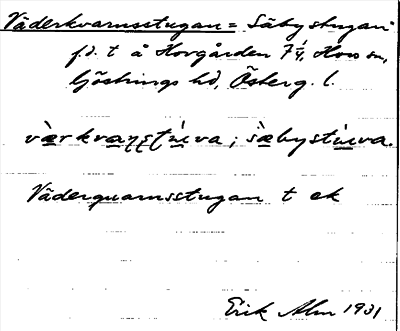 Väderkvarnsstugan = Säbystugan
f.d. t å Hovgården 7 1/4, Hovs sn,
Göstrings hd, Österg. l.
vàrkvaɳʂʈùva; sàbystùva.
Väderquarnsstugan t ek
Erik Alm 1931